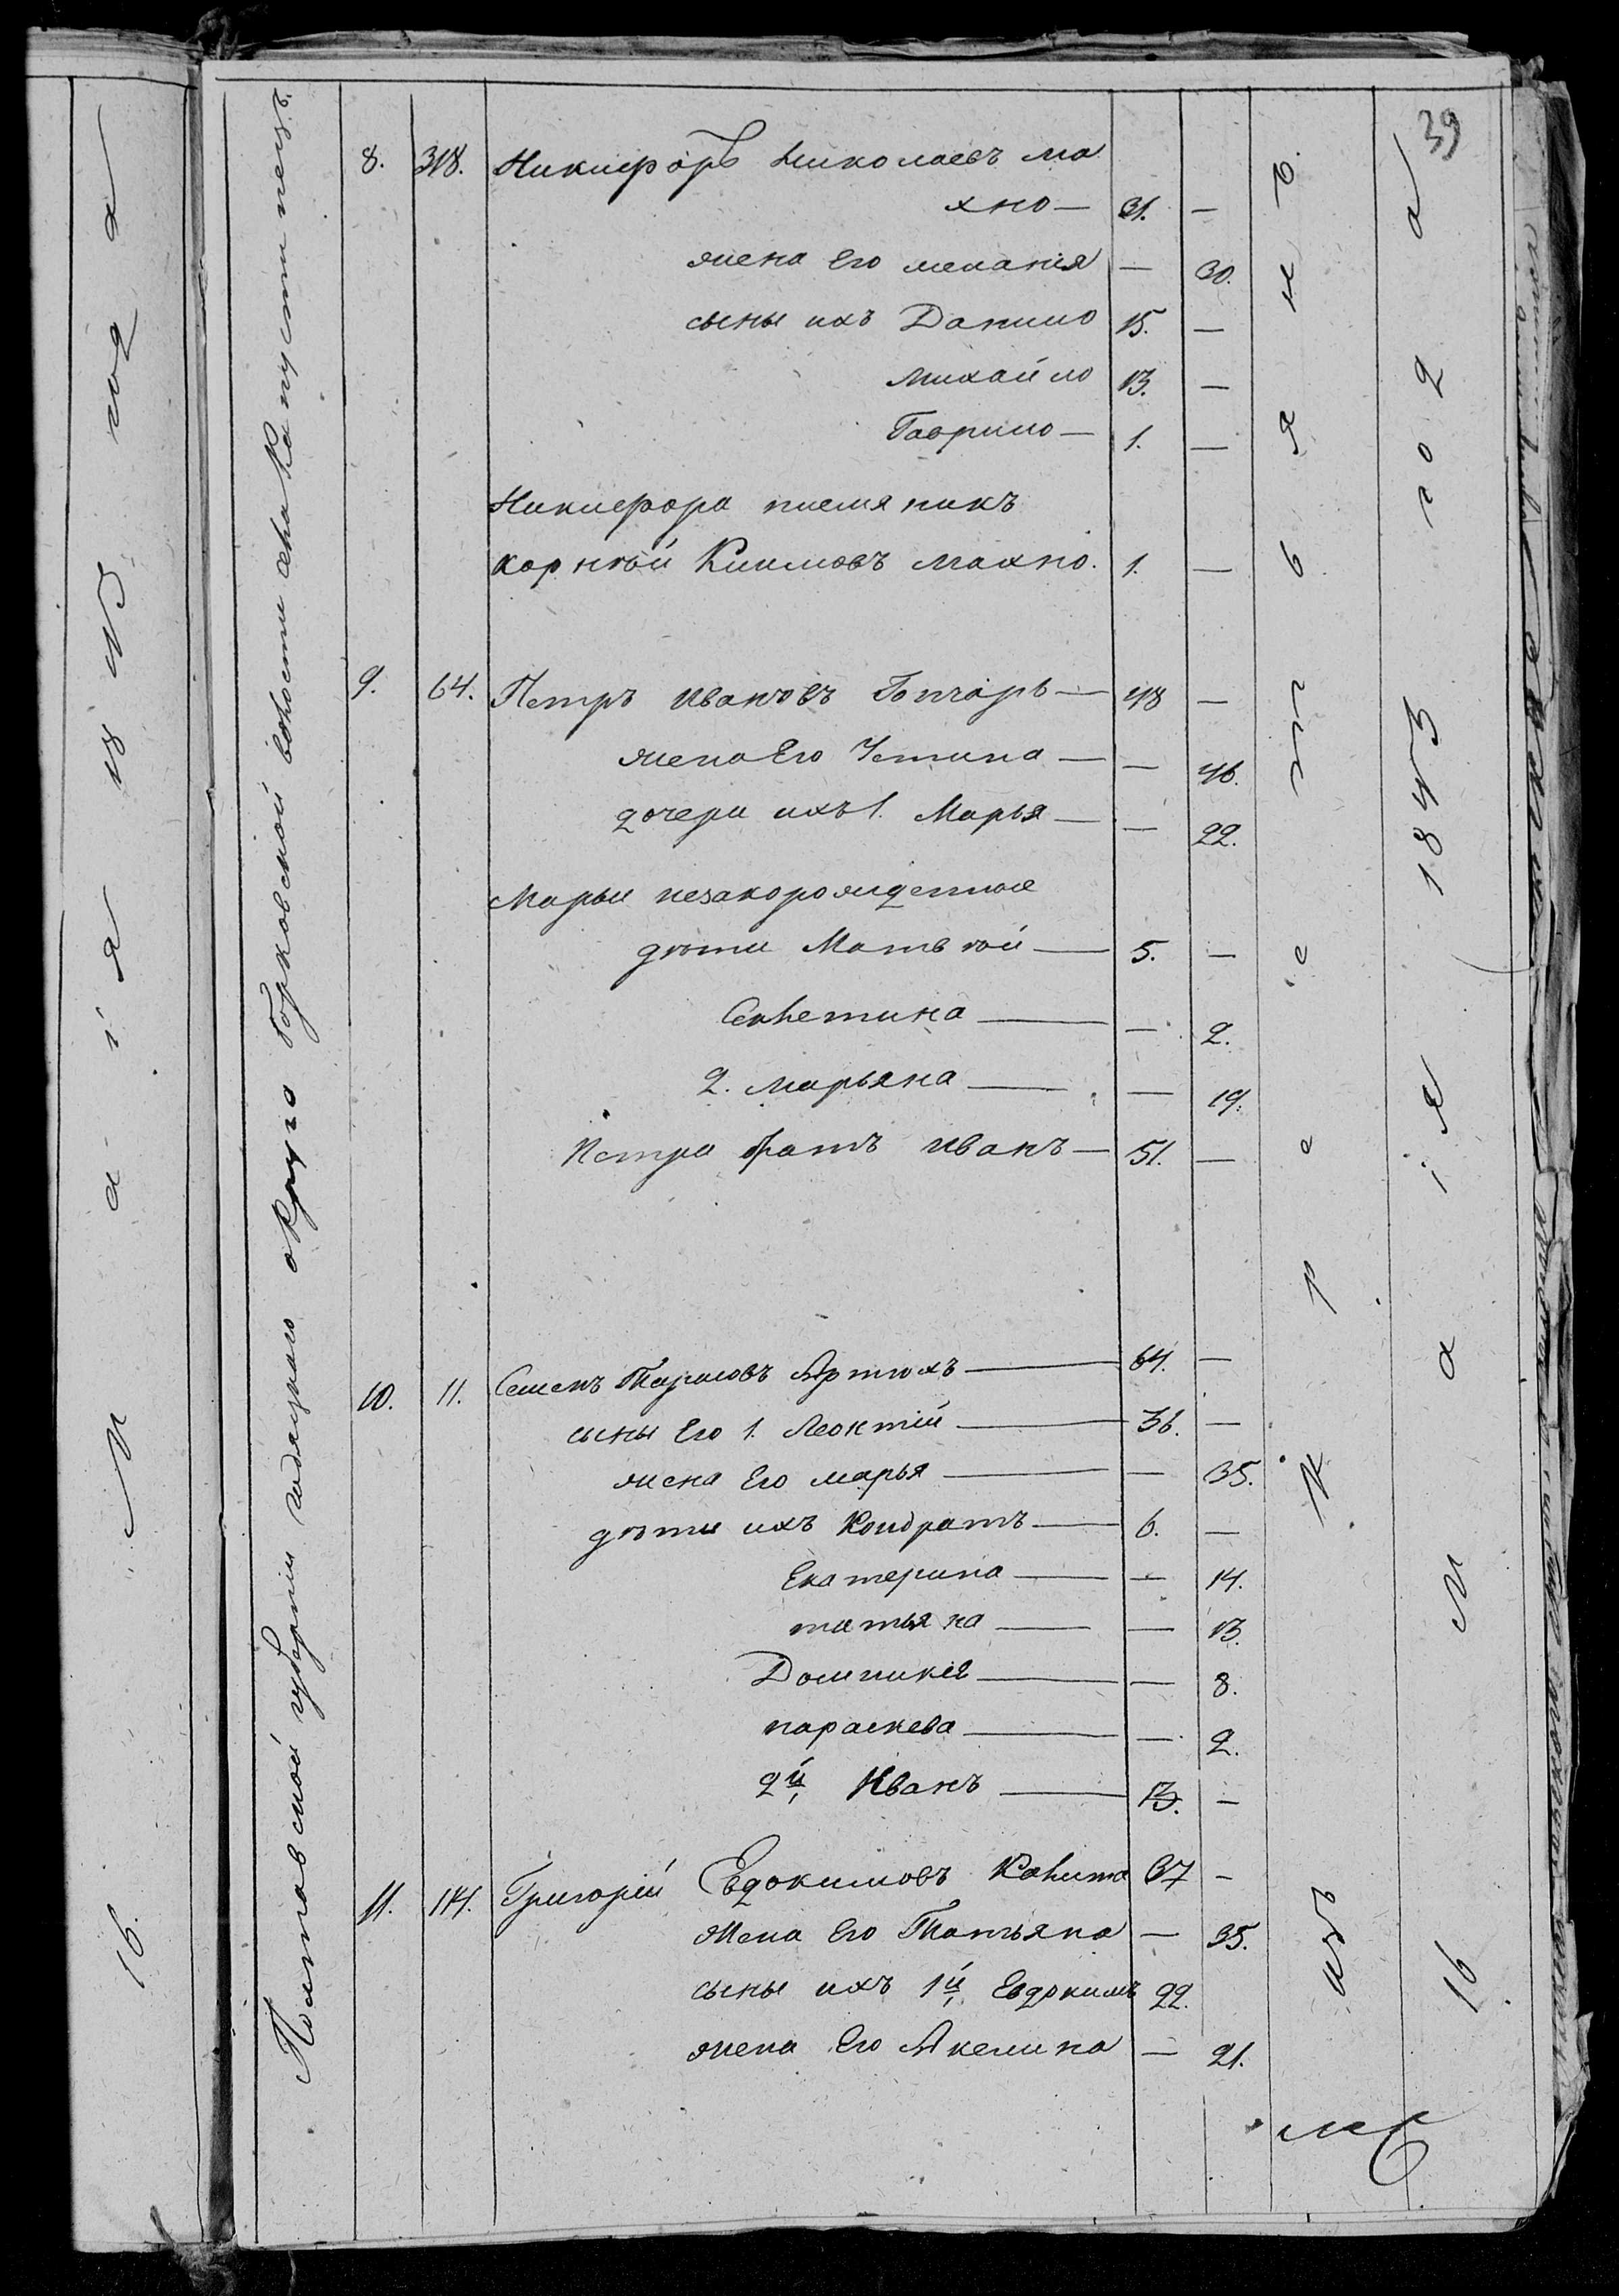 39
Полтавской губерніи гадяцкаго округа Борковской волости села капустинецъ.
8. 318. Никифоръ Николаевъ ма
хно — 31. —
жена Его меланія — 30.
сыны ихъ Данило 15. —
михайло 13. —
Гаврило — 1. —
Никифора племяникъ
корнѣй Климовъ махно. 1. —
9. 64. Петръ ивановъ Гончаръ — 48 —
жена Его Устина — — 46.
дочери ихъ 1. Марья — — 22.
Марьи незакорожденные
дѣти Матвѣй — 5. —
Секлетина — — 2.
2. марьяна — — 19.
Петра братъ иванъ — 51. —
10. 11. Семенъ Тарасовъ Артюхъ — 64. —
сыны Его 1. Леонтій — 36. —
жена Его марья — — 35.
дѣти ихъ Кондратъ — 6. —
Екатерина — — 14.
татьяна — — 13.
Домникія — — 8.
параскева — — 2.
2й, Иванъ — 13. —
11. 141. Григорій Евдокимовъ Калита 37 —
жена Его Татьяна — 35.
сыны ихъ 1й, Евдокимъ 22.
жена Его Акелина — 21.
изъ крестьянъ.
16 маія 1843 года
16. маія 1843 года